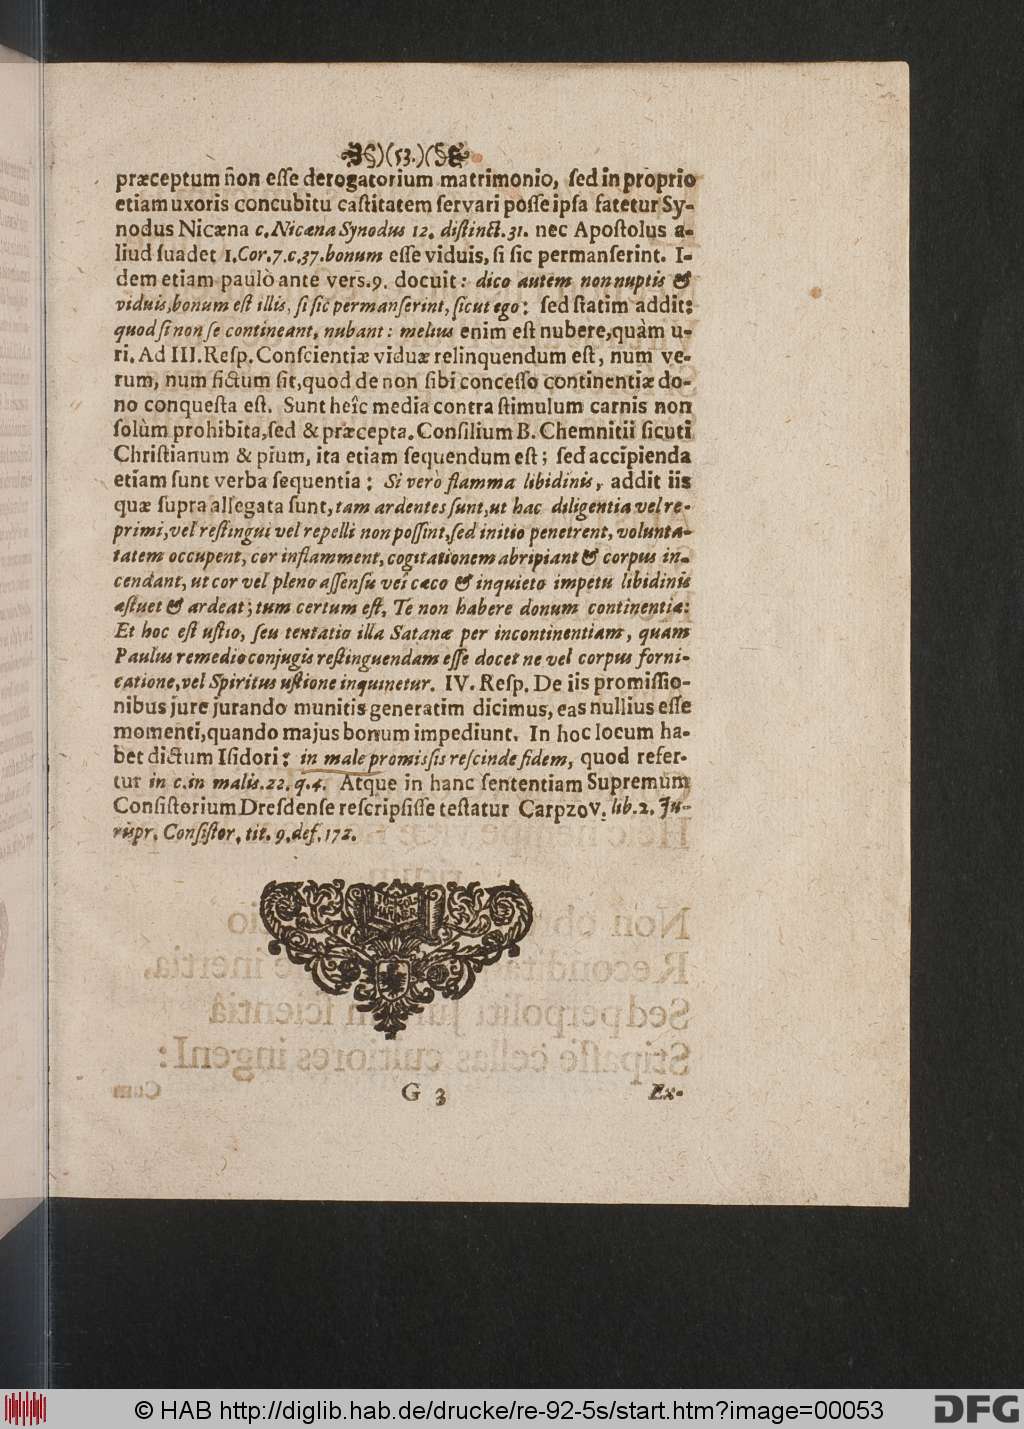 )(53.)(
præceptum non esſe derogatorium matrimonio, ſed in proprio
etiam uxoris concubitu caſtitatem ſervari poſſe ipſa fatetur Sy-
nodus Nicæna c. Nicæna Synodus 12. diſtinct. 31. nec Apoſtolus a-
liud ſuadet 1. Cor. 7. c. 37. bonum eſſe viduis, ſi ſic permanſerint. I-
dem etiam paulò ante verſ. 9. docuit: dico autem non nuptis &
viduis, bonum eſt illis, ſi ſic permanſerint, ſicut ego: ſed ſtatim addit:
quod ſi non ſe contineant, nubant: melius enim eſt nubere, quàm u-
ri. Ad III. Reſp. Conſcientiæ viduæ relinquendum eſt, num ve-
rum, num fictum ſit, quod de non ſibi conceſſo continentiæ do-
no conqueſta eſt. Sunt heîc media contra ſtimulum carnis non
ſolùm prohibita, ſed & præcepta. Conſilium B. Chemnitii ſicuti
Chriſtianum & pium, ita etiam ſequendum eſt; ſed accipienda
etiam ſunt verba ſequentia: Si verò flamma libidinis, addit iis
quæ ſupra allegata ſunt, tam ardentes ſunt, ut hac diligentia vel re-
primi, vel reſtingui vel repelli non poſſint, ſed initio penetrent, volunta-
tatem occupent, cor inflamment, cogitationem abripiant & corpus in-
cendant, ut cor vel pleno aſſenſu vel cæco & inquieto impetu libidinis
æſtuet & ardeat; tum certum eſt, Te non habere donum continentiæ:
Et hoc eſt uſtio, ſeu tentatio illa Satanæ per incontinentiam, quam
Paulus remedio conjugis reſtinguendam eſſe docet ne vel corpus forni-
catione, vel Spiritus uſtione inquinetur. IV. Reſp. De iis promiſſio-
nibus jure jurando munitis generatim dicimus, eas nullius eſſe
momenti, quando majus bonum impediunt. In hoc locum ha-
bet dictum Iſidori: in male promiſſis reſcinde fidem, quod refer-
tur in c. in malis. 22. q. 4. Atque in hanc ſententiam Supremum
Conſiſtorium Dresdenſe reſcripſiſſe teſtatur Carpzov. lib. 2. Ju-
rispr. Conſiſtor. tit. 9. def. 172.
G 3
Ex-
© HAB http://diglib.hab.de/drucke/re-92-5s/start.htm?image=00053
DFG